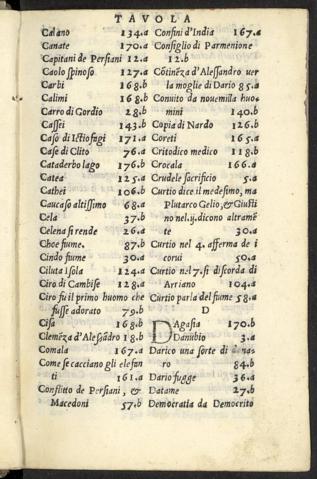 TAVOLA
Calano 134.a
Canate 170.a
Capitani de Persiani 12.a
Caolo spinoso 127.a
Carbi 168.b
Calimi 168.b
Carro di Gordio 28.b
Cassei 143.b
Caso di Ictiofagi 171.a
Case di Clito 76.a
Cataderbo lago 176.b
Catea 125.a
Cathei 106.b
Caucaso altissimo 68.a
Cela 37.b
Celena si rende 26.a
Choe fiume. 87.b
Cindo fiume 30.a
Ciluta Isola 124.a
Ciro di Cambise 128.a
Ciro fu il primo huomo che
fusse adorato 79.b
Cisa 168.b
Clemēza d'Alesādro 18.b
Comala 167.a
Come se cacciano gli elefan
ti 161.a
Conflitto de Persiani, &
Macedoni 57.b
Confini d'India 167.a
Consiglio di Parmenione
12.b
Cōtinēza d'Alessandro uer
la moglie di Dario 85.a
Conuito da nouemilla huo=
mini 140.b
Copia di Nardo 126.b
Coreti 165.a
Critodico medico 118.b
Crocala 166.a
Crudele sacrificio 5.a
Curtio dice il medesimo, ma
Plutarco Gelio, & Giusti
no nel.ij.dicono altramē
te 30.a
Curtio nel 4. afferma de i
corui 50.a
Curtio nel 7. si discorda di
Arriano 104.a
Curtio parla del fiume 58.a
D
Dagasia 170.b
Danubio 3.a
Darico una sorte di dena=
ro 84.b
Dario fugge 36.a
Datame 27.b
Democratia da Democrito